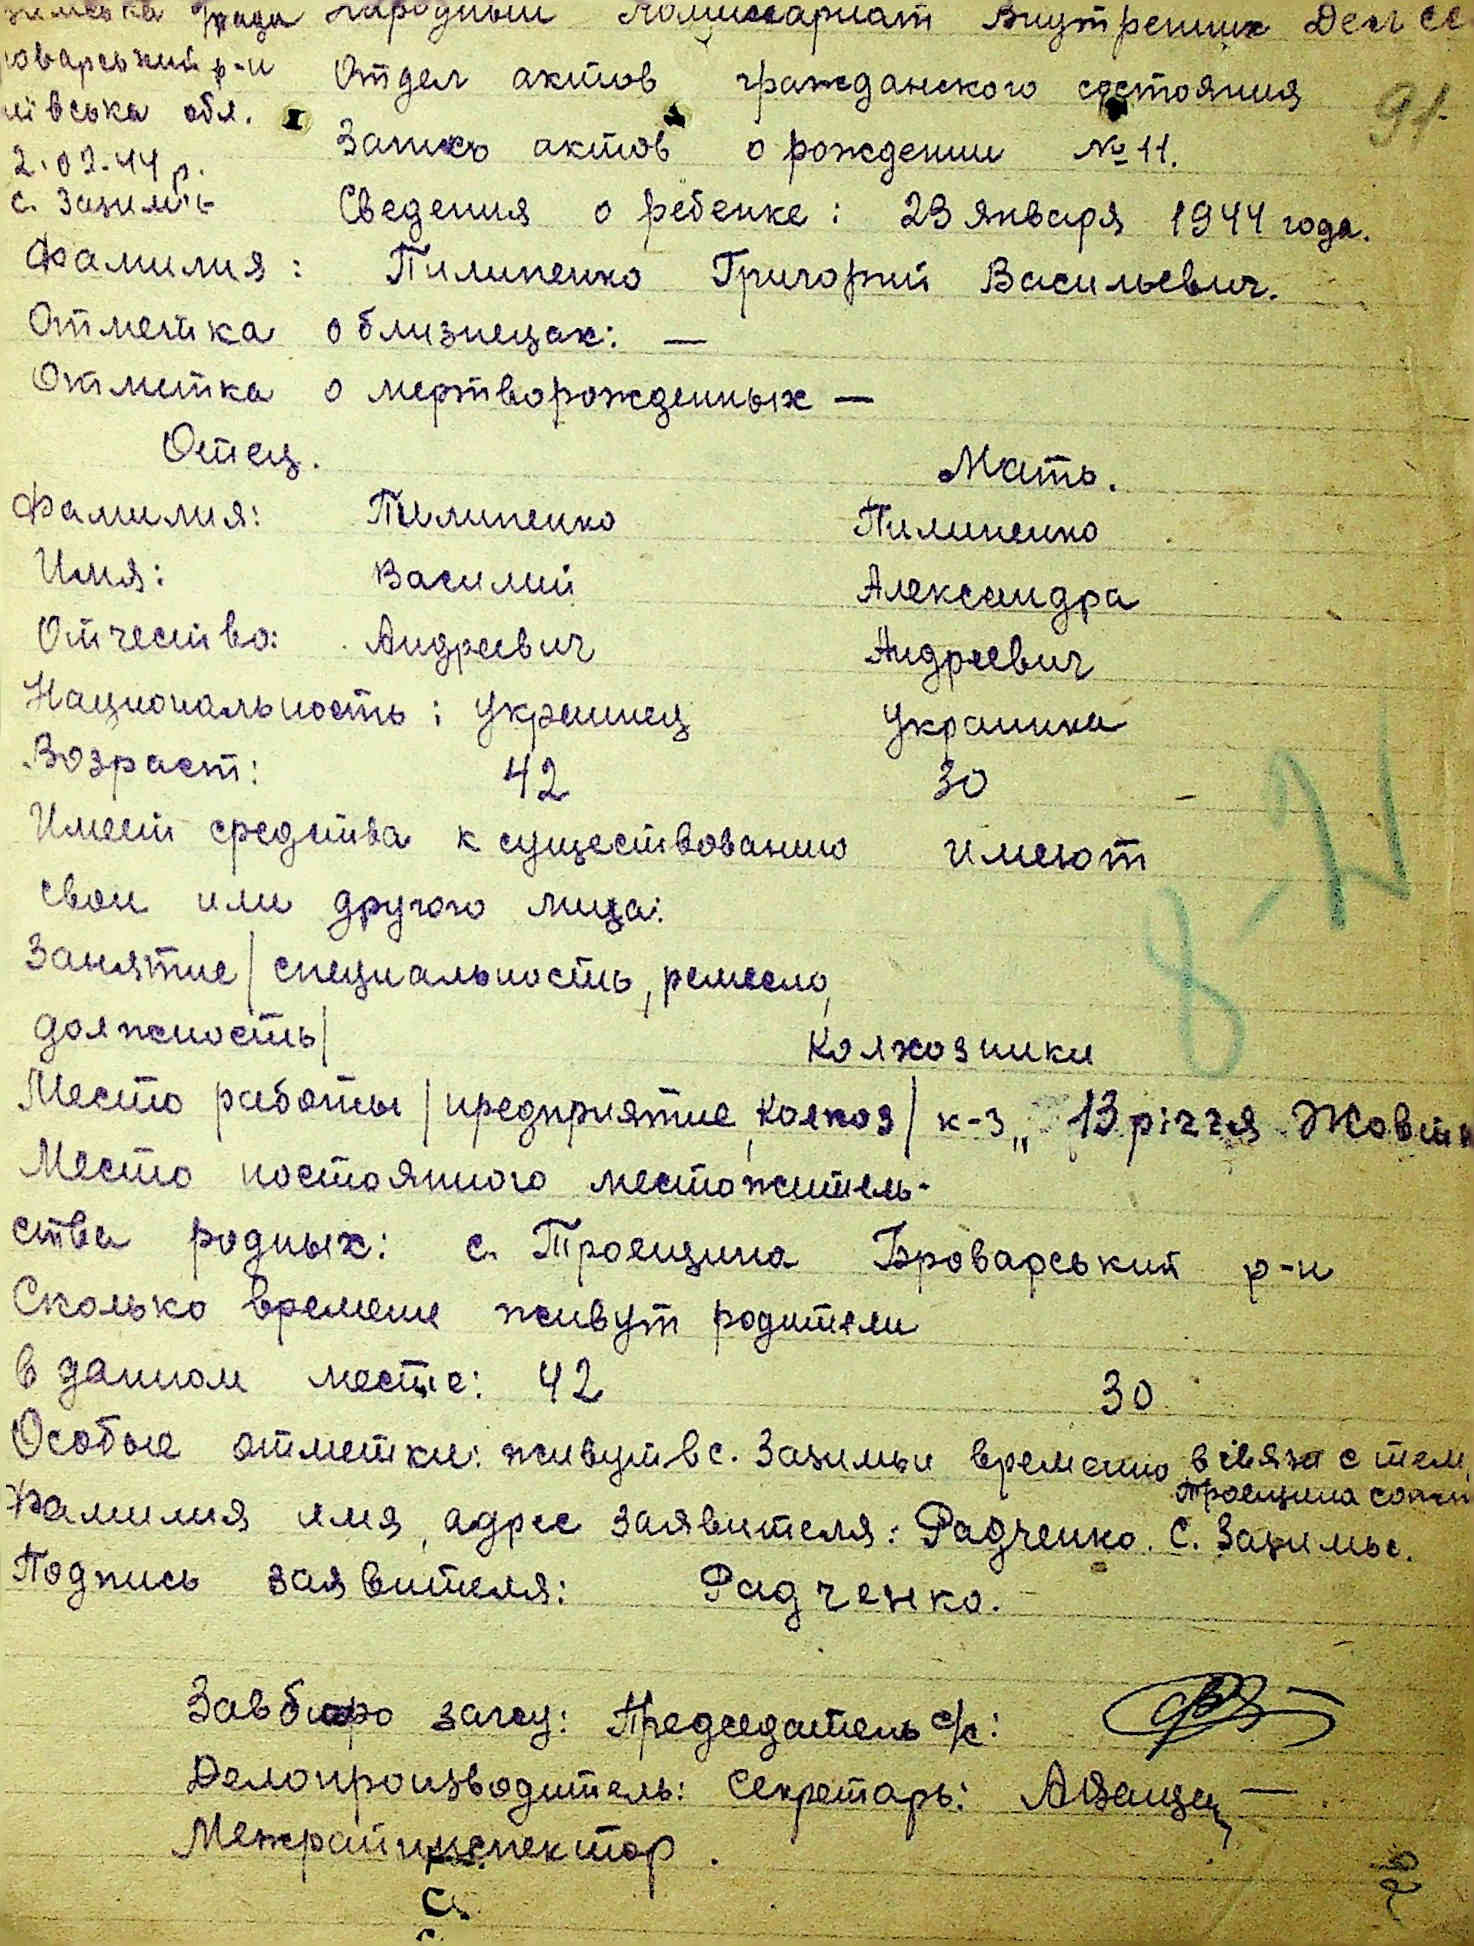 Народный Комиссариат Внутрених Дел СС
рада
оварський р-н
Отдел актов гражданского состояния
91
ївська обл.
Запись актов о рождении № 11.
2.02.44 р.
с. Зазим'є
Сведения о ребенке: 23 января 1944 года.
Фамилия: Пилипенко Григорий Васильевич.
Отметка о близнецах: —
Отметка о мертворожденных —
Отец. Мать.
Фамилия: Пилипенко Пилипенко
Имя: Василий Александра
Отчество: Андреевич Андреевич
Национальность: украинец украинка
Возраст: 42 30
Имеет средства к существованию имеют
свои или другого лица:
Занятие/специальность, ремесло,
должность/ Колхозники
Место работы/предприятие, колхоз/ к-з „13 річчя Жовтн
Место постоянного местожитель-
ства родных: с. Троещина Броварський р-н
Сколько времени живут родители
в данном месте: 42 30
Особые отметки: живут в с. Зазимьи временно в связи с тем,
Троещина
Фамилия имя, адрес заявителя: Радченко. С. Зазимье.
Подпись заявителя: Радченко.
Завбюро загсу: Председатель с/с:
Делопроизводитель: Секретарь:
Межрайинспектор.